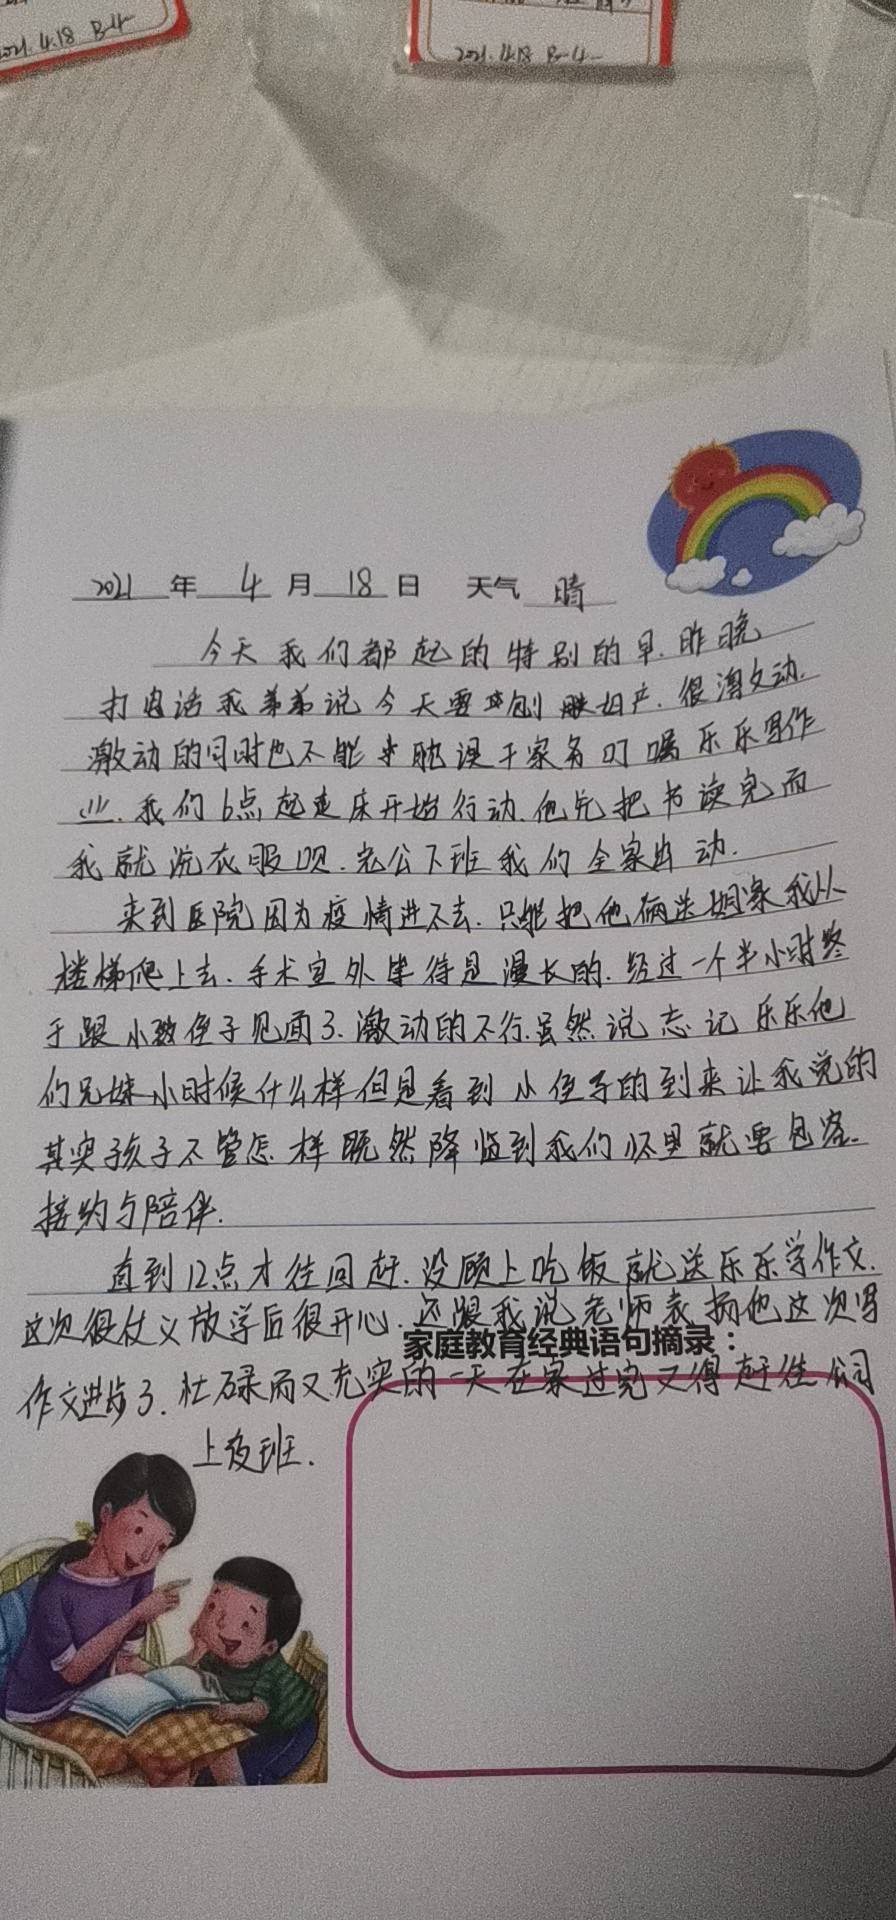 2021.4.18 B-4
2021.4.18 B-4
2021年4月18日 天气 晴
今天我们都起的特别的早.昨晚
打电话我弟弟说今天要剖腹妇产.很激动.
激动的同时也不能耽误干家务叮嘱乐乐写作
业.我们6点起床开始行动.他先把书读完而
我就洗衣服呗.老公下班我们全家出动.
来到医院因为疫情进不去.只能把他俩送姐家我从
楼梯爬上去.手术室外等待是漫长的.经过一个半小时终
于跟小侄子见面了.激动的不行.虽然说忘记乐乐他
们兄妹小时候什么样但是看到小侄子的到来让我觉的
其实孩子不管怎样既然降临到我们怀里就要包容.
接纳与陪伴.
直到12点才往回赶.没顾上吃饭就送乐乐学作文.
这次很仗义放学后很开心.还跟我说老师表扬他这次写
家庭教育经典语句摘录：
作文进步了.忙碌而又充实的一天在家过完又得赶往公司
上夜班.